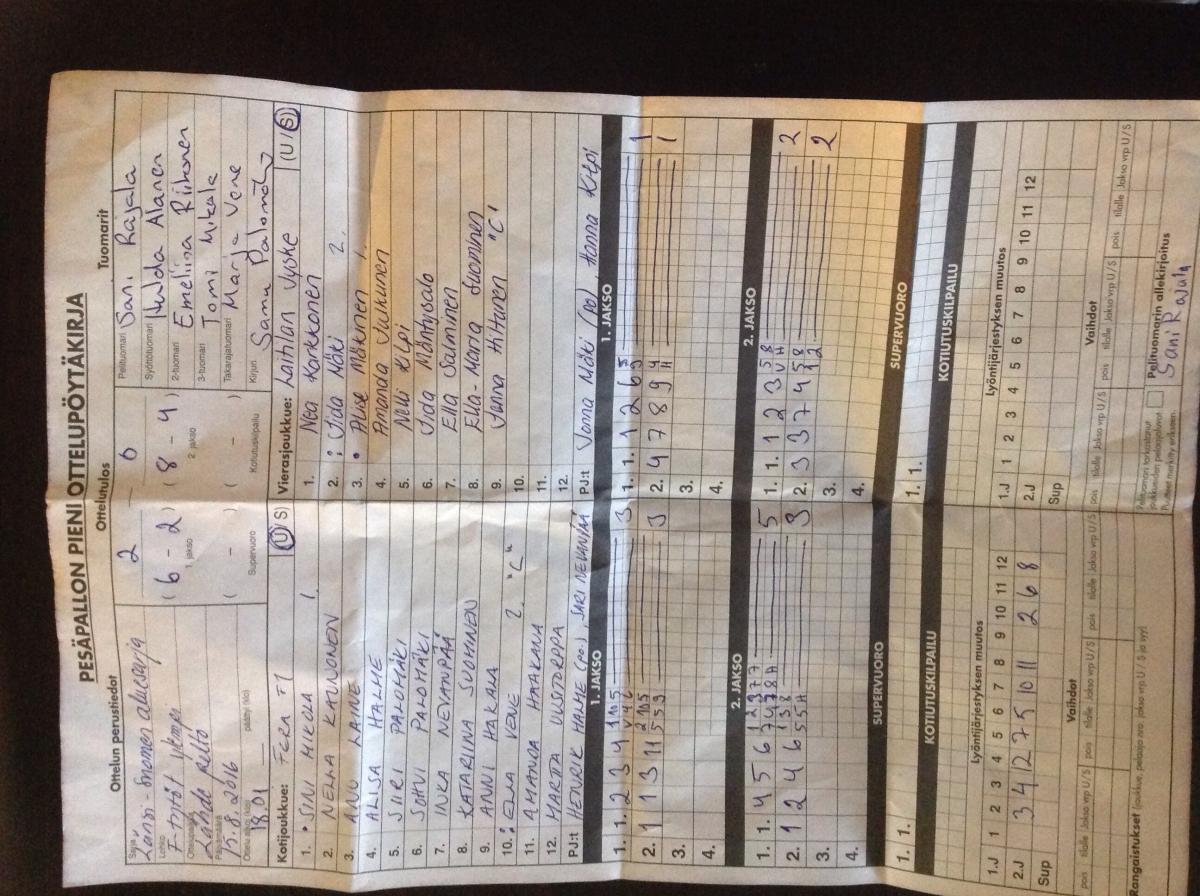 PESÄPALLON PIENI OTTELUPÖYTÄKIRJA
Ottelun perustiedot
Ottelutulos
Tuomarit
Sarja Länsi-Suomen aluesarja
Lohko F-tytöt ylempi
Ottelupaikka Lähde pelto
Päivämäärä 15.8.2016
Ottelu alkoi (klo) 18.01 päättyi (klo)
2 6
( 6 - 2 ) ( 8 - 4 )
1. jakso 2. jakso
( - ) ( - )
Supervuoro Kotiutuskilpailu
Pelituomari Sani Rajala
Syöttötuomari Hulda Alanen
2-tuomari Emeliina Riikonen
3-tuomari Tomi Mikola
Takarajatuomari Marja Vene
Kirjuri Sanna Palomäki
Kotijoukkue: FERA F1 (U / S)
1. • SINI MIKOLA 1.
2. NELLA KAUVONEN
3. ANU LAINE
4. ALISA HALME
5. SIIRI PALOMÄKI
6. SOHVI PALOMÄKI
7. INKA NEVANPÄÄ
8. KATARIINA SUOMINEN
9. ANNI HAKALA
10. : ELLA VENE 2. "C"
11. AMANDA HAAKANA
12. MARTTA UUSITORPPA
PJ:t HENRIK HALME (po.), SARI NEVANPÄÄ
Vierasjoukkue: Laitilan Jyske (U / S)
1. Nea Karkkonen
2. : Iida Mäki 2.
3. • Aline Mäkinen 1.
4. Amanda Julkunen
5. Nelli Kilpi
6. Iida Mäntysalo
7. Ella Salminen
8. Ella-Maria Suominen
9. Janna Hiltonen "C"
10.
11.
12.
PJ:t Jonna Mäki (po), Hanna Kilpi
1. JAKSO
1. 1. 2 3 4 3
2. 1 1 3 11 3
3.
4.
1. JAKSO
1. 1. 1 2 6 1
2. 4 7 8 9 1
3.
4.
2. JAKSO
1. 1. 4 5 6 5
2. 1 2 4 6 3
3.
4.
2. JAKSO
1. 1. 1 2 3 2
2. 3 3 7 4 2
3.
4.
SUPERVUORO
1. 1.
SUPERVUORO
1. 1.
KOTIUTUSKILPAILU
KOTIUTUSKILPAILU
Lyöntijärjestyksen muutos
1.J 1 2 3 4 5 6 7 8 9 10 11 12
2.J 3 4 12 7 5 10 11 2 6 8
Sup
Lyöntijärjestyksen muutos
1.J 1 2 3 4 5 6 7 8 9 10 11 12
2.J
Sup
Vaihdot
pois tilalle Jakso vrp U / S pois tilalle Jakso vrp U / S pois tilalle Jakso vrp U / S
Vaihdot
pois tilalle Jakso vrp U / S pois tilalle Jakso vrp U / S pois tilalle Jakso vrp U / S
Rangaistukset (joukkue, pelaaja nro, jakso vrp U / S ja syy)
Pelituomari tarkastanut joukkueiden pelaajaluvat.
Puutteet merkitty erikseen.
Pelituomarin allekirjoitus
Sani Rajala